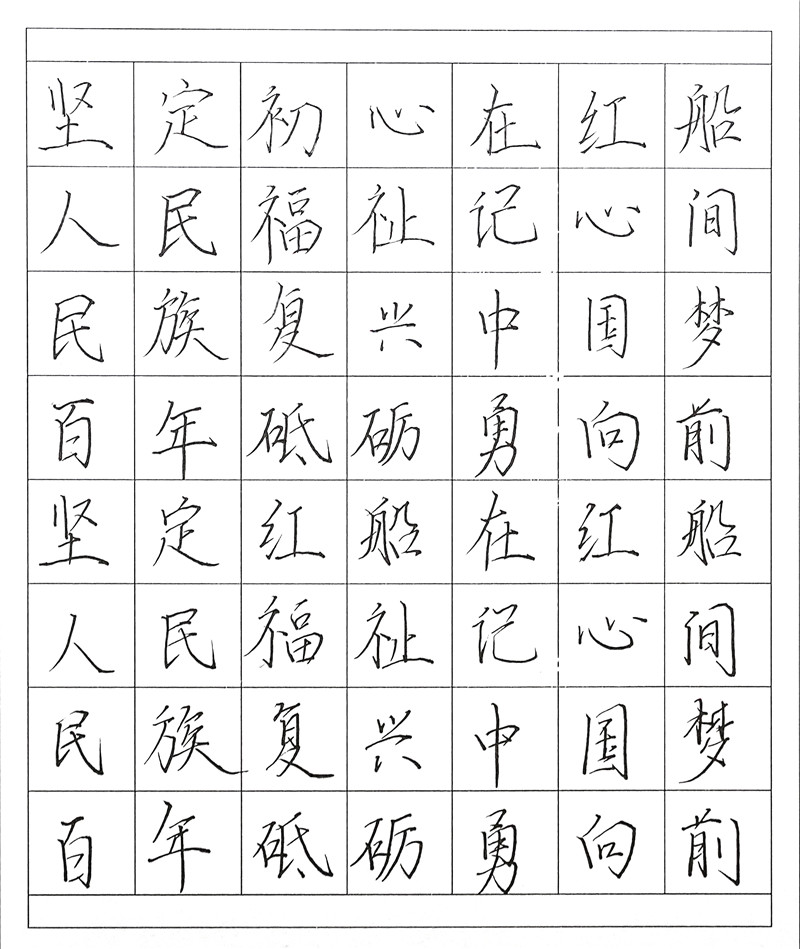 坚定初心在红船
人民福祉记心间
民族复兴中国梦
百年砥砺勇向前
坚定红船在红船
人民福祉记心间
民族复兴中国梦
百年砥砺勇向前